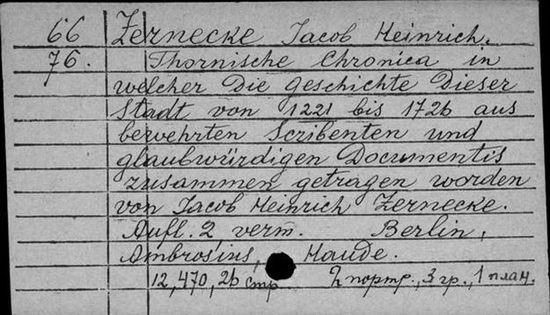 66 Zernecke Jacob Heinrich.
76. Thornische Chronica in
welcher Die Geschichte Dieser
Stadt von 1221 bis 1726 aus
bewehrten Scribenten und
glaubwürdigen Documentis
zusammen getragen worden
von Jacob Heinrich Zernecke.
Aufl. 2, verm. Berlin,
Ambrosius, Haude.
12, 470, 26 стр 2 портр., 3 гр., 1 план.